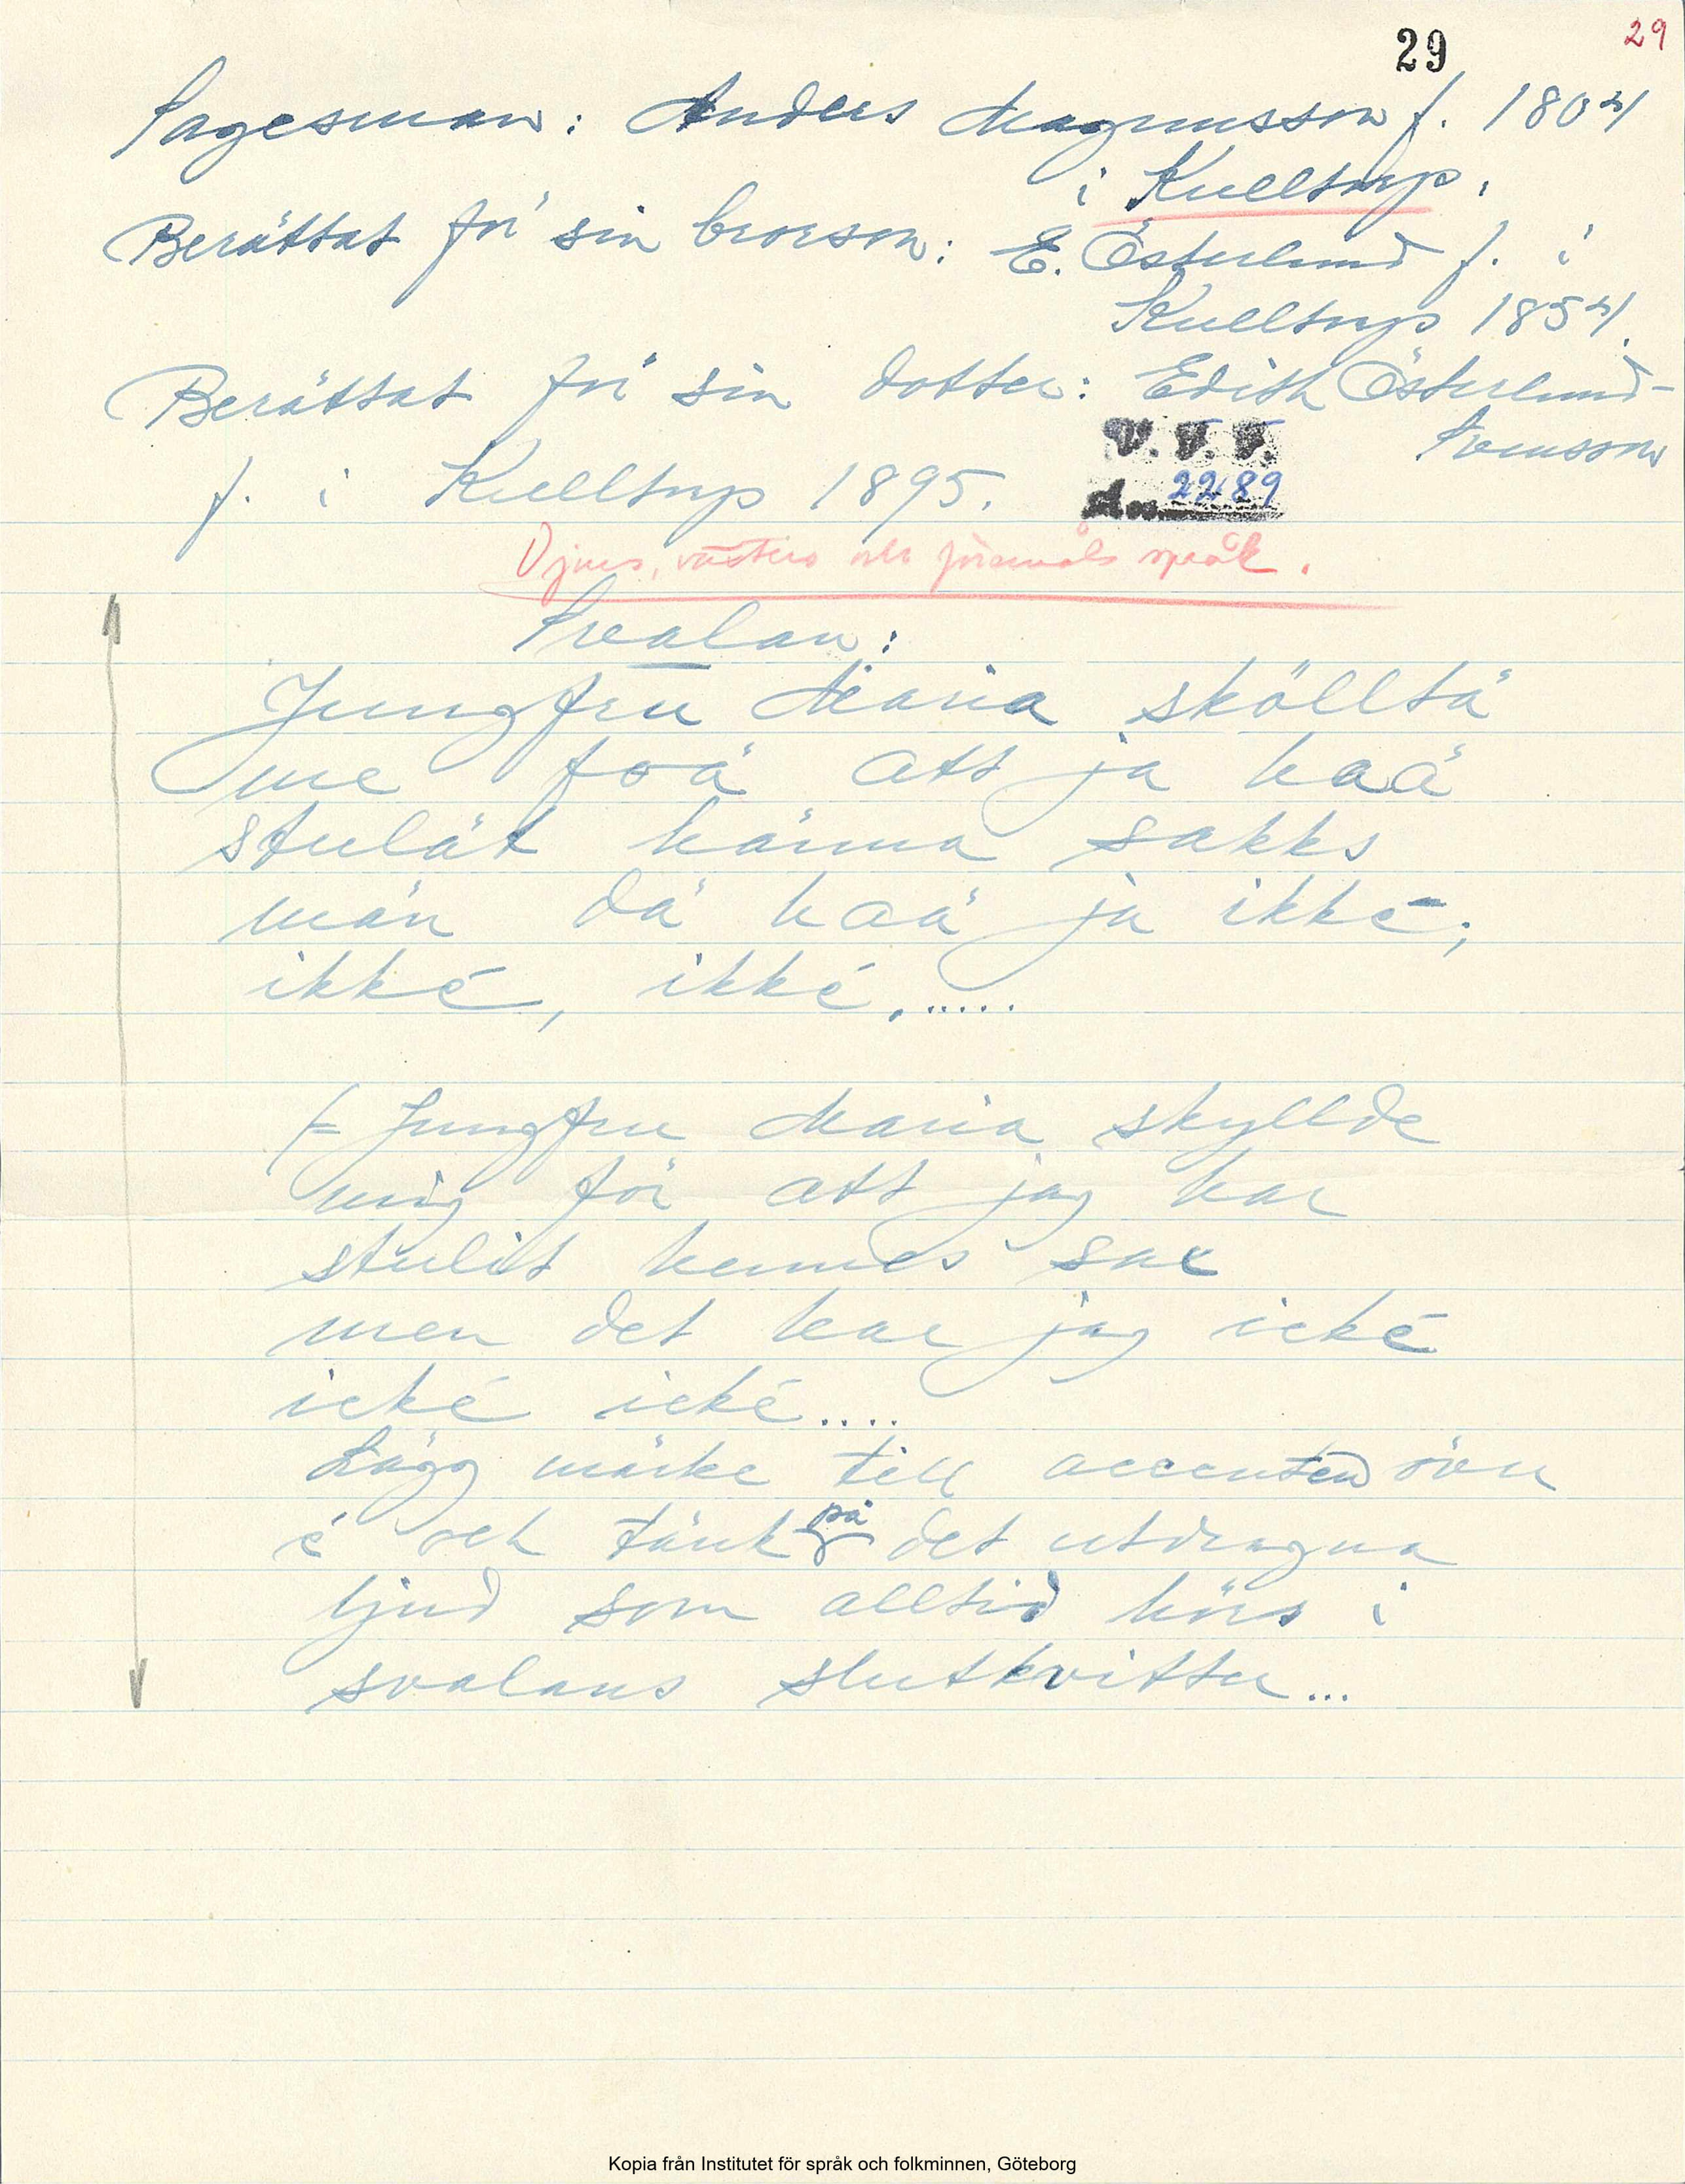 29
29
Sagesman: Anders Magnusson f. 1804
i Kulltorp.
Berättat för sin brorson: E. Österlund f. i
Kulltorp 1854.
Berättat för sin dotter: Edith Österlund-
Svensson
f. i Kulltorp 1895.
V. F. F.
2289
Djurs, växters och föremåls språk.
Svalan:
Jungfru Maria skölltä
me foä att ja haä
stulät hänna sakks
män dä haä ja ikké,
ikké, ikké......
(= Jungfru Maria skyllde
mig för att jag har
stulit hennes sax
men det har jag ické
ické ické....
Lägg märke till accenten över
é och tänk på det utdragna
ljud som alltid hörs i
svalans slutkvitter...
Kopia från Institutet för språk och folkminnen, Göteborg